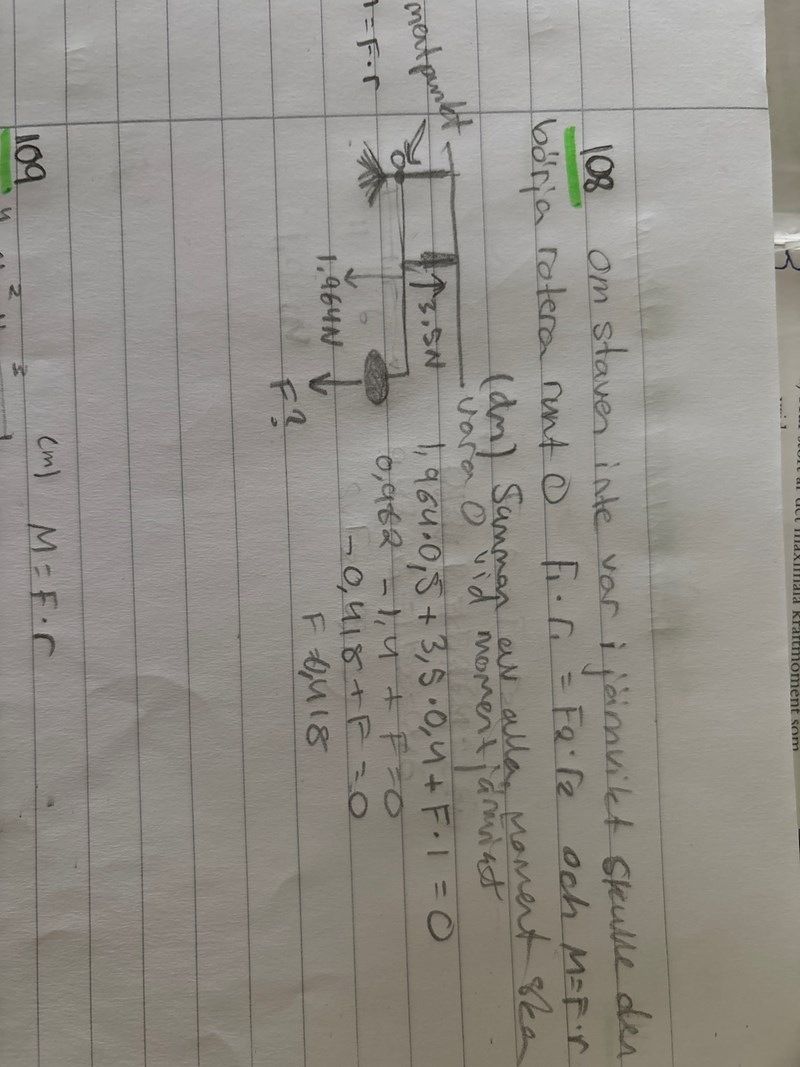 108 om staven inte var i jämvikt skulle den
börja rotera runt O F₁·r₁ = F₂·r₂ och M=F·r
(dm) Summan av alla moment ska
vara 0 vid momentjämvikt
mentpunkt
= F·r
3,5N
1,964N
F?
1,964·0,5 + 3,5·0,4 + F·1 = 0
0,982 - 1,4 + F = 0
- 0,418 + F = 0
F = 0,418
109 (m) M = F·r
är det maximala kraftmoment som